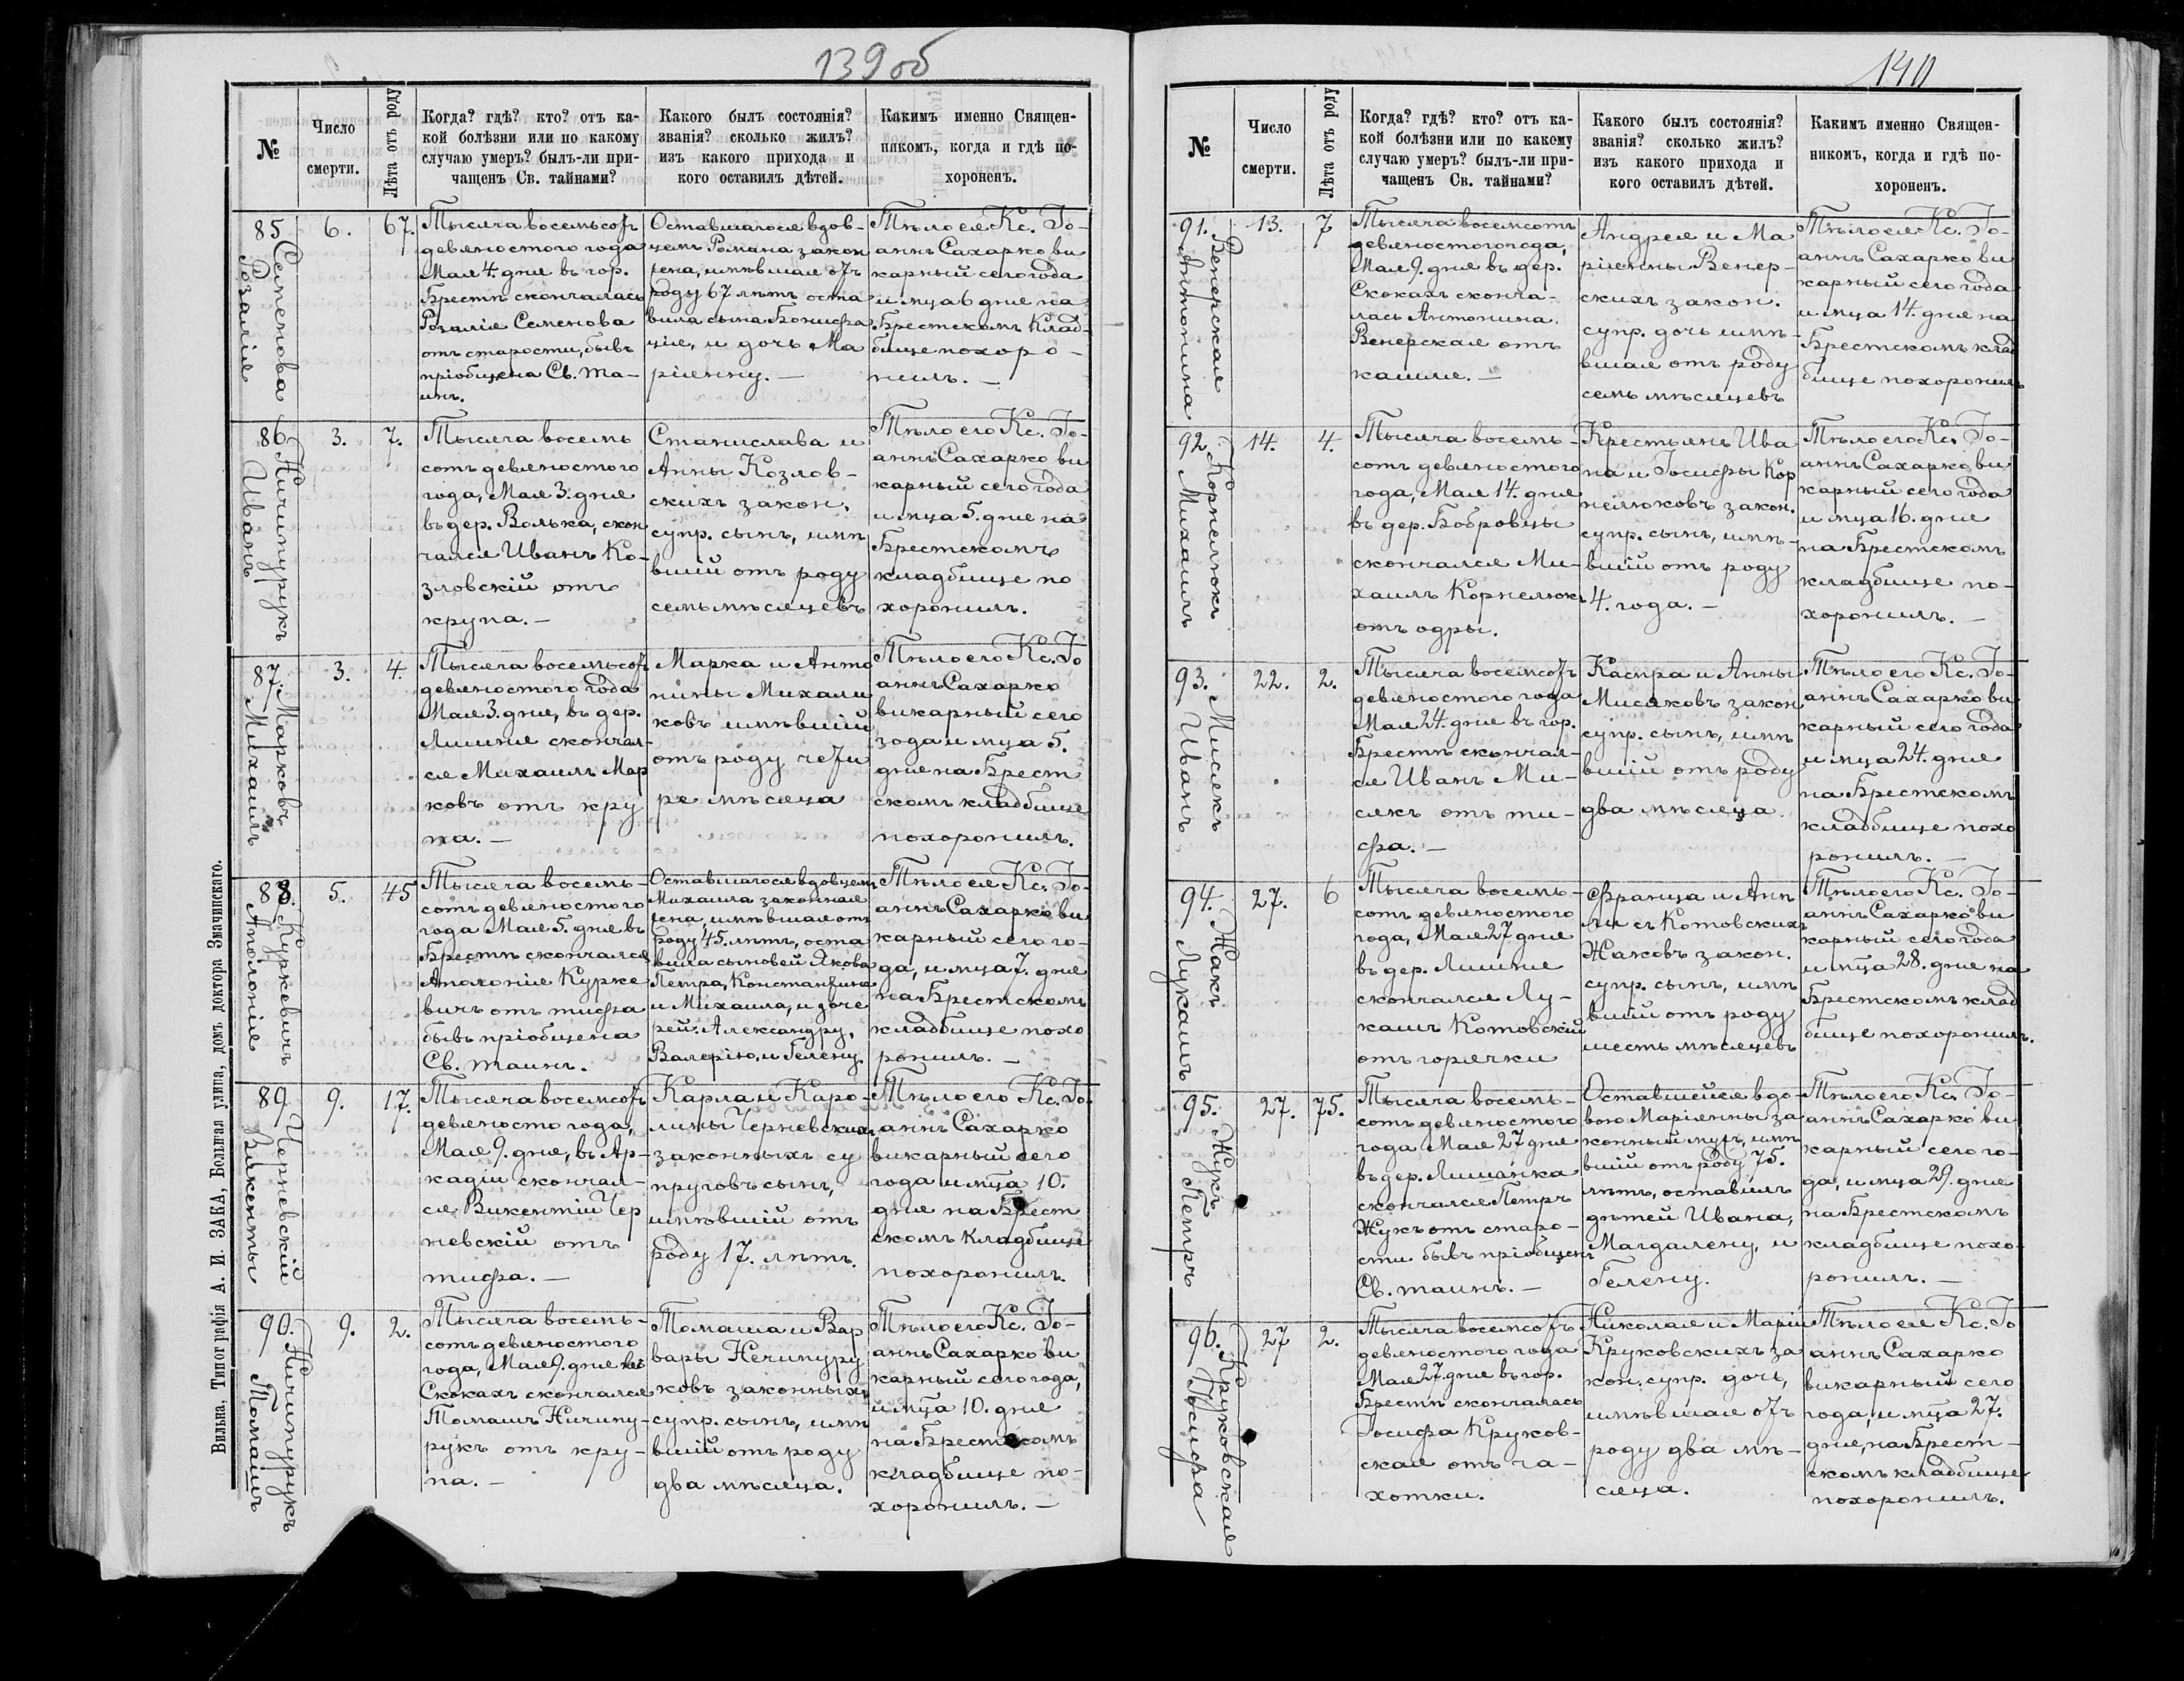 139 об
№
Число
смерти.
Лѣта отъ роду
Когда? гдѣ? кто? отъ ка-
кой болѣзни или по какому
случаю умеръ? былъ-ли при-
чащенъ Св. тайнами?
Какого былъ состоянія?
званія? сколько жилъ?
изъ какого прихода и
кого оставилъ дѣтей.
Какимъ именно Священ-
никомъ, когда и гдѣ по-
хороненъ.
85
Семенова
Розалія
6.
67.
Тысяча восемьсотъ
девяностого года
Мая 4. дня въ гор.
Брестѣ скончалась
Розалія Семенова
отъ старости, бывъ
пріобщена Св. та-
инъ.
Оставшагося вдов-
цемъ Романа закон
жена, имѣвшая отъ
роду 67 лѣтъ оста
вила сына Бонифа
ція, и дочь Ма
ріянну. —
Тѣло ея Кс. Іо-
аннъ Сахарко ви
карный сего года
и мца 6 дня на
Брестскомъ Клад-
бище похоро-
нилъ. —
86
Ничипурукъ
Иванъ
3.
7.
Тысяча восемь
сотъ девяностого
года, Мая 3. дня
въ дер. Волька, скон
чался Иванъ Ко-
зловскій отъ
крупа. —
Станислава и
Анны Козлов-
скихъ закон.
супр. сынъ, имѣ
вшій отъ роду
семь мѣсяцевъ
Тѣло его Кс. Іо-
аннъ Сахарко ви
карный сего года
и мца 5. дня на
Брестскомъ
кладбище по
хоронилъ.
87.
Марковъ
Михаилъ
3.
4.
Тысяча восемьсотъ
девяностого года
Мая 3. дня, въ дер.
Лишня скончал-
ся Михаилъ Мар
ковъ отъ кру
па. —
Марка и Анто
нины Михалю
ковъ имѣвшій
отъ роду четы
ре мѣсяца
Тѣло его Кс. Іо
аннъ Сахарко
викарный сего
года и мца 5.
дня на Брест
скомъ кладбище
похоронилъ.
88.
Куркевичъ
Аполонія
5.
45
Тысяча восемь-
сотъ девяностого
года Мая 5. дня въ
Брестѣ скончался
Аполонія Курке-
вичъ отъ тифа
бывъ пріобщена
Св. таинъ.
Оставшагося вдовцемъ
Михаила законная
жена, имѣвшая отъ
роду 45. лѣтъ, оста
вила сыновей Якова
Петра, Константина
и Михаила, и доче
рей: Александру,
Валерію, и Гелену.
Тѣло ея Кс. Іо-
аннъ Сахарко ви
карный сего го-
да, и мца 7. дня
на Брестскомъ
кладбище похо
ронилъ. —
89
Черневскій
Викенты
9.
17.
Тысяча восемсотъ
девяносто года,
Мая 9. дня, въ Ар-
кадіи скончал-
ся Викентій Чер
невскій отъ
тифа. —
Карла и Каро-
лины Черневскихъ
законныхъ су
пруговъ сынъ,
имѣвшій отъ
роду 17. лѣтъ.
Тѣло его Кс. Іо-
аннъ Сахарко
викарный сего
года и мца 10.
дня на Брест
скомъ Кладбище
похоронилъ.
90.
Ничипурукъ
Томашъ
9.
2.
Тысяча восемь-
сотъ девяностого
года, Мая 9. дня въ
Скокахъ скончался
Томашъ Ничипу-
рукъ отъ кру-
па. —
Томаша и Вар
вары Нечипуру
ковъ законныхъ
супр. сынъ, имѣ
вшій отъ роду
два мѣсяца.
Тѣло его Кс. Іо-
аннъ Сахарко ви
карный сего года,
и мца 10. дня
на Брестскомъ
кладбище по-
хоронилъ. —
Вильна, Типографія А. И. ЗАКА, Большая улица, домъ доктора Змачинскаго.
140
№
Число
смерти.
Лѣта отъ роду
Когда? гдѣ? кто? отъ ка-
кой болѣзни или по какому
случаю умеръ? былъ-ли при-
чащенъ Св. тайнами?
Какого былъ состоянія?
званія? сколько жилъ?
изъ какого прихода и
кого оставилъ дѣтей.
Какимъ именно Священ-
никомъ, когда и гдѣ по-
хороненъ.
91.
Венерская
Антонина
13.
7
Тысяча восемсотъ
девяностого года,
Мая 9. дня въ дер.
Скокахъ сконча-
лась Антонина
Венерская отъ
кашля. —
Андрея и Ма
ріянны Венер-
скихъ закон.
супр. дочь имѣ-
вшая отъ роду
семь мѣсяцевъ
Тѣло ея Кс. Іо-
аннъ Сахарко ви
карный сего года
и мца 14. дня на
Брестскомъ клад
бище похоронилъ
92.
Корнелюкъ
Михаилъ
14.
4.
Тысяча восемь-
сотъ девяностого
года, Мая 14. дня
въ дер. Бобровцы
скончался Ми-
хаилъ Корнелюкъ
отъ одры.
Крестьянъ Ива
на и Іосифы Кор
нелюковъ закон.
супр. сынъ, имѣ-
вшій отъ роду
4. года. —
Тѣло его Кс. Іо-
аннъ Сахарко ви
карный сего года
и мца 16. дня
на Брестскомъ
кладбище по-
хоронилъ. —
93.
Мисякъ
Иванъ
22.
2.
Тысяча восемсотъ
девяностого года
Мая 24. дня въ гор.
Брестѣ скончал-
ся Иванъ Ми-
сякъ отъ ти-
фа. —
Каспра и Анны
Мисяковъ закон
супр. сынъ, имѣ
вшій отъ роду
два мѣсяца.
Тѣло его Кс. Іо-
аннъ Сахарко ви
карный сего года
и мца 24. дня
на Брестскомъ
кладбище похо
ронилъ. —
94.
Жакъ
Лукашъ
27.
6
Тысяча восемь-
сотъ девяностого
года, Мая 27 дня
въ дер. Лишня
скончался Лу-
кашъ Котовскій
отъ горячки
Франца и Анѣ
ли съ Котовскихъ
Жаковъ закон.
супр. сынъ, имѣ
вшій отъ роду
шесть мѣсяцевъ
Тѣло его Кс. Іо-
аннъ Сахарко ви
карный сего года
и мца 28. дня на
Брестскомъ клад
бище похоронилъ.
95.
Жукъ
Петръ
27.
75.
Тысяча восемь-
сотъ девяностого
года Мая 27 дня
въ дер. Лишанка
скончался Петръ
Жукъ отъ старо-
сти бывъ пріобщенъ
Св. таинъ. —
Оставшейся вдо-
вою Маріянны за
конный мужъ, имѣ
вшій отъ роду 75.
лѣтъ, оставилъ
дѣтей Ивана,
Магдалену, и
Гелену.
Тѣло его Кс. Іо-
аннъ Сахарко ви
карный сего го-
да, и мца 29. дня
на Брестскомъ
кладбище похо-
ронилъ. —
96.
Круковская
Іосифа
27
2.
Тысяча восемсотъ
девяностого года
Мая 27. дня въ гор.
Брестѣ скончалась
Іосифа Круков-
ская отъ ча-
хотки.
Николая и Маріи
Круковскихъ за
кон. супр. дочь,
имѣвшая отъ
роду два мѣ-
сяца.
Тѣло ея Кс. Іо
аннъ Сахарко
викарный сего
года, и мца 27.
дня, на Брест-
скомъ кладбище
похоронилъ.